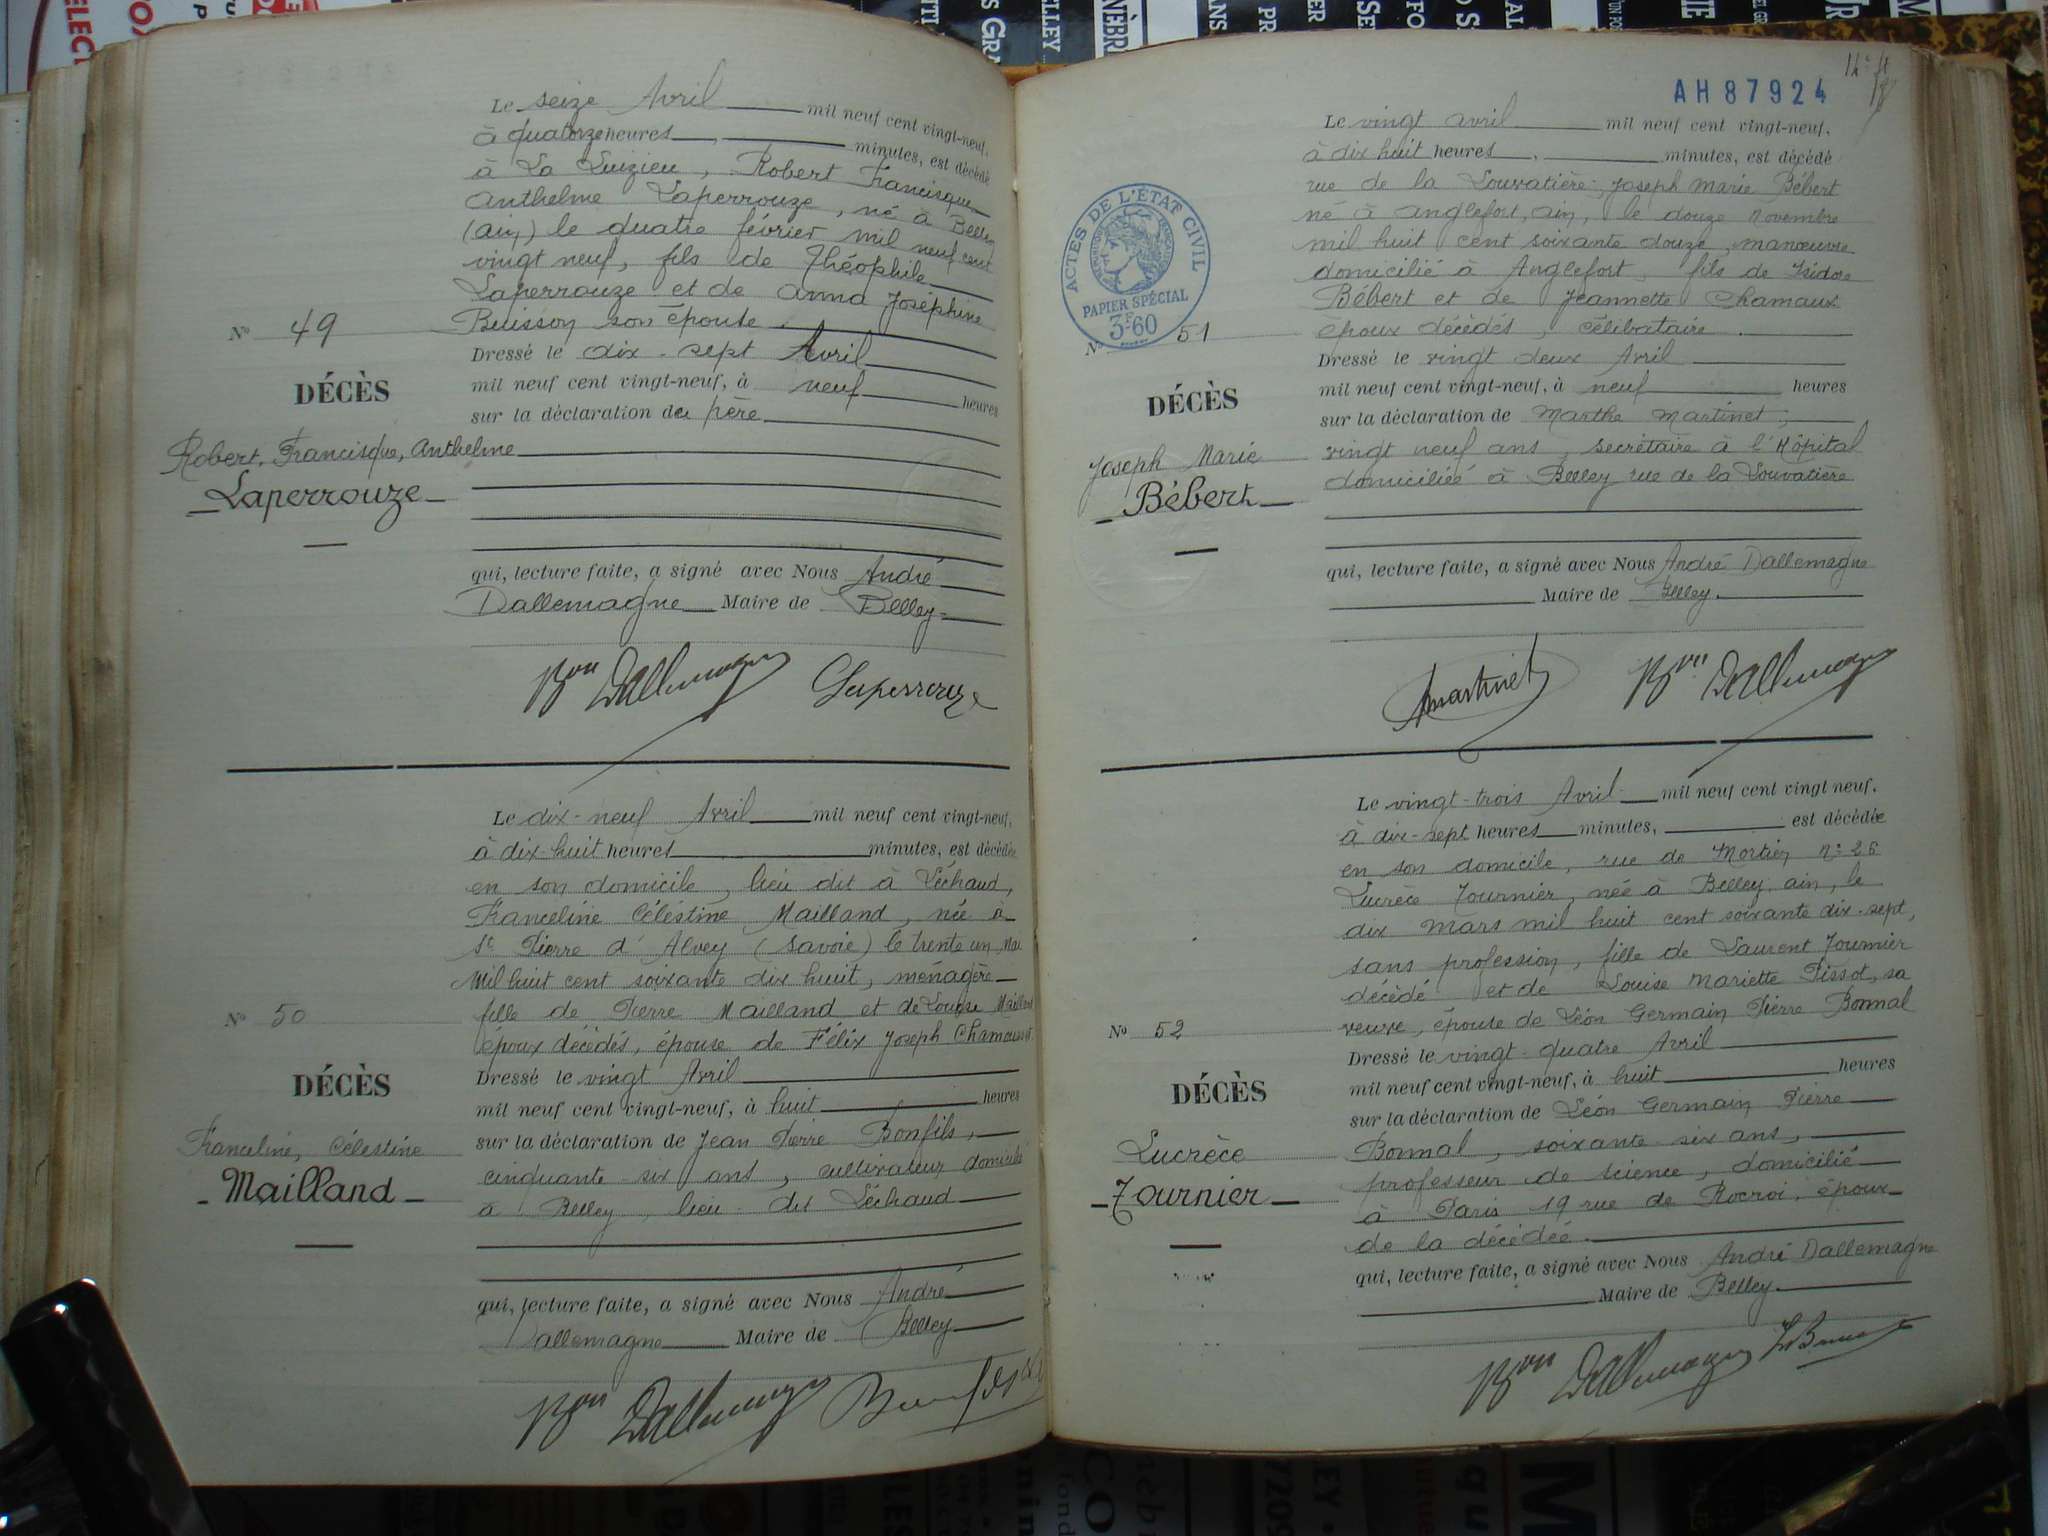 Le seize Avril mil neuf cent vingt-neuf,
à quatorze heures, minutes, est décédé
à La Luizieu, Robert Francisque
Anthelme Laperrouze, né à Belley
(ain) le quatre février mil neuf cent
vingt neuf, fils de Théophile
Laperrouze et de Anna Joséphine
Buisson son épouse.
Nº 49
Dressé le dix-sept Avril
mil neuf cent vingt-neuf, à neuf heures
sur la déclaration du père
DÉCÈS
Robert, Francisque, Anthelme
Laperrouze
qui, lecture faite, a signé avec Nous André
Dallemagne Maire de Belley
Bon Dallemagne Laperrouze
Le dix-neuf Avril mil neuf cent vingt-neuf,
à dix-huit heures minutes, est décédée
en son domicile, lieu dit à Léchaud,
Franceline Céléstine Mailland, née à
St Pierre d'Alvey (Savoie) le trente un Mai
mil huit cent soixante dix huit, ménagère
fille de Pierre Mailland et de Louise Mailland
époux décédés, épouse de Félix Joseph
Nº 50
Dressé le vingt Avril
mil neuf cent vingt-neuf, à huit heures
sur la déclaration de Jean Pierre Bonfils,
cinquante-six ans, cultivateur, domicilié
à Belley, lieu dit Léchaud
DÉCÈS
Franceline, Célestine
Mailland
qui, lecture faite, a signé avec Nous André
Dallemagne Maire de Belley
Bon Dallemagne
AH87924
Le vingt avril mil neuf cent vingt-neuf,
à dix huit heures, minutes, est décédé
rue de la Louvatière, Joseph Marie Bébert
né à Anglefort, ain, le douze Novembre
mil huit cent soixante douze, manœuvre
domicilié à Anglefort, fils de Isidore
Bébert et de Jeannette Chamaux
époux décédés, célibataire.
ACTES DE L'ÉTAT CIVIL
RÉPUBLIQUE FRANÇAISE
PAPIER SPÉCIAL
3F60
Nº 51
Dressé le vingt deux Avril
mil neuf cent vingt-neuf, à neuf heures
sur la déclaration de Marthe Martinet,
vingt neuf ans, secrétaire à l'Hôpital
domiciliée à Belley rue de la Louvatière
DÉCÈS
Joseph Marie
Bébert
qui, lecture faite, a signé avec Nous André Dallemagne
Maire de Belley.
Martinet Bon Dallemagne
Le vingt-trois Avril mil neuf cent vingt neuf,
à dix-sept heures minutes, est décédée
en son domicile, rue de Mortier nº 26
Lucrèce Tournier, née à Belley, ain, le
dix Mars mil huit cent soixante dix-sept,
sans profession, fille de Laurent Tournier
décédé et de Louise Mariette Pissot, sa
veuve, épouse de Léon Germain Pierre Bonnal
Nº 52
Dressé le vingt-quatre Avril
mil neuf cent vingt-neuf, à huit heures
sur la déclaration de Léon Germain Pierre
Bonnal, soixante-six ans,
professeur de science, domicilié
à Paris 19 rue de Rocroi, époux
de la décédée.
DÉCÈS
Lucrèce
Tournier
qui, lecture faite, a signé avec Nous André Dallemagne
Maire de Belley
Bon Dallemagne